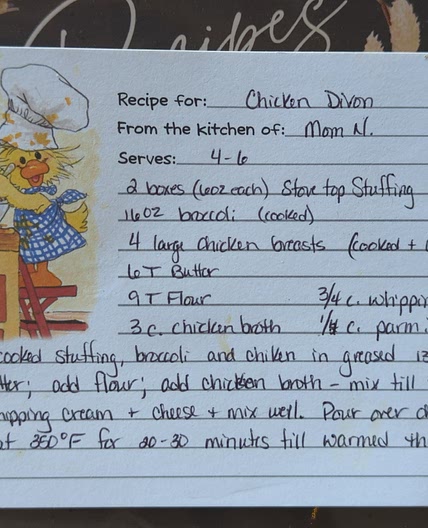 Recipes
Recipe for: Chicken Divon
From the kitchen of: Mom N.
Serves: 4-6
2 boxes (6oz each) Stove top Stuffing
16oz broccoli (cooked)
4 large chicken breasts (cooked +
6 T Butter
9 T Flour 3/4 c. whippin
3 c. chicken broth 1/4 c. parm.
cooked stuffing, broccoli and chiken in greased 13
tter; add flour; add chicken broth - mix till
hipping cream + cheese + mix well. Pour over
at 350°F for 20-30 minutes till warmed th